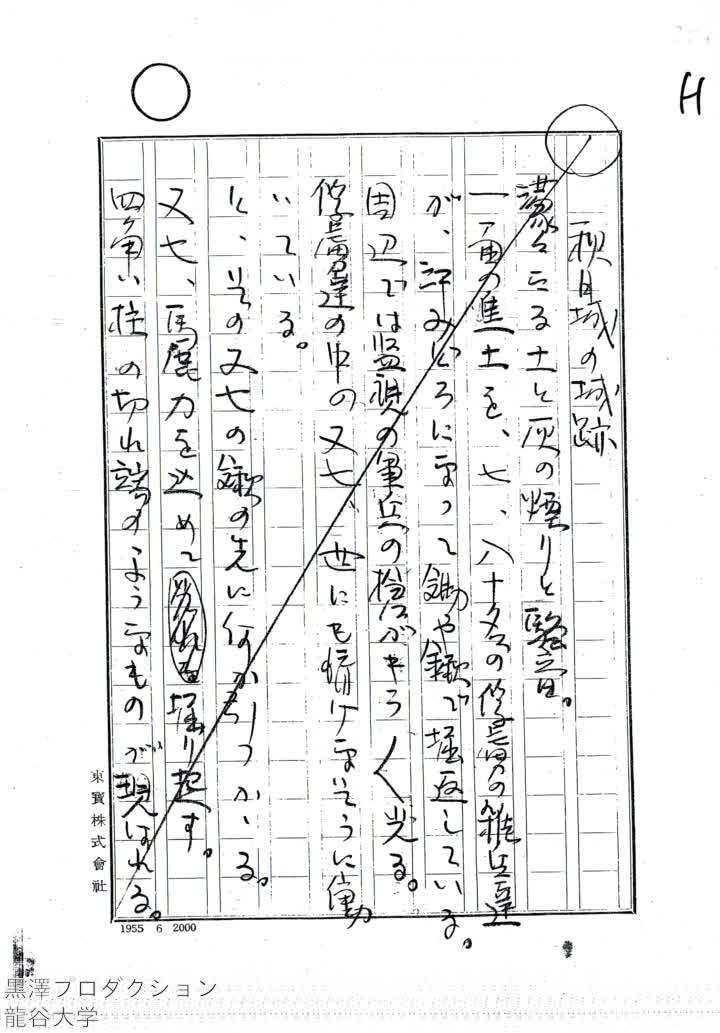 H
秋月城の城跡
濛々たる土と灰の煙りと騒音。
一面の焦土を、七、八十名の俘虜の雑兵達
が、汗みどろになって鋤や鍬で堀返している。
周辺では監視の軍兵の槍がキラ〱光る。
俘虜達の中の又七、世にも情けなそうに働
いている。
と、その又七の鍬の先に何か引っかゝる。
又七、馬鹿力を込めて堀り起す。
四角い柱の切れ端のようなものが現ほれる。
東寶株式會社
1955 6 2000
黒澤プロダクション
龍谷大学